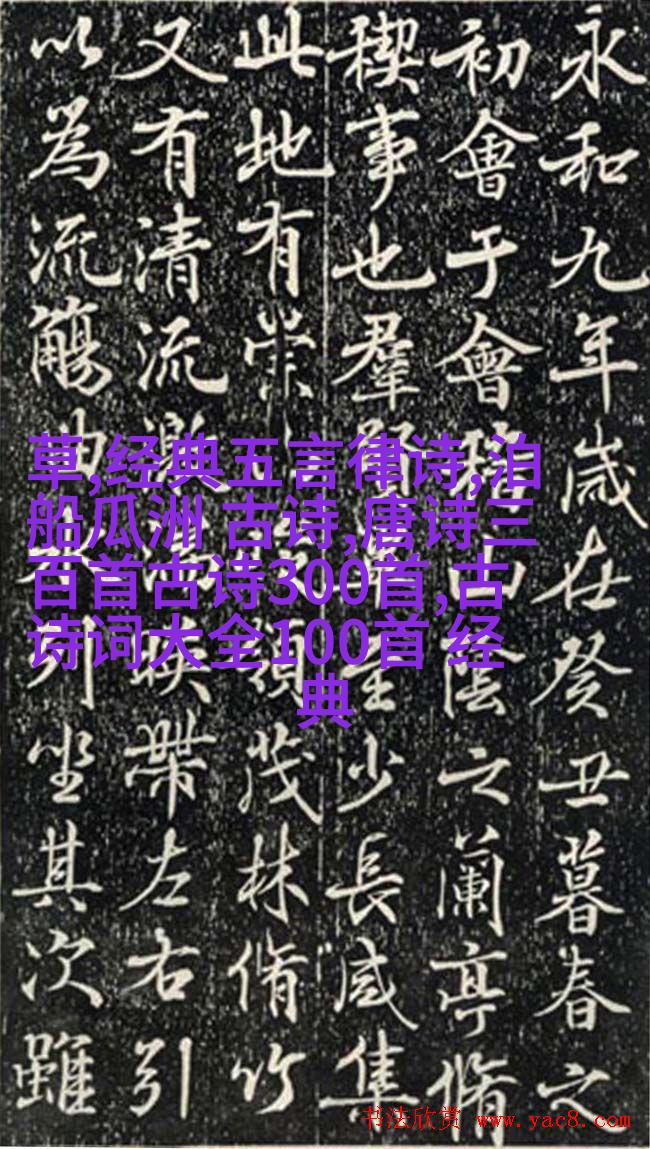 永和九年歲在癸丑暮春之
初會于會稽山陰之蘭亭脩
稧事也羣賢至少長咸集
此地有崇領茂林脩竹
又有清流激湍暎帶左右引
以為流觴曲水列坐其次雖
草,经典五言律诗,泊
船瓜洲 古诗,唐诗三
百首古诗300首,古
诗词大全100首 经
典
书法欣赏 www.yac8.com